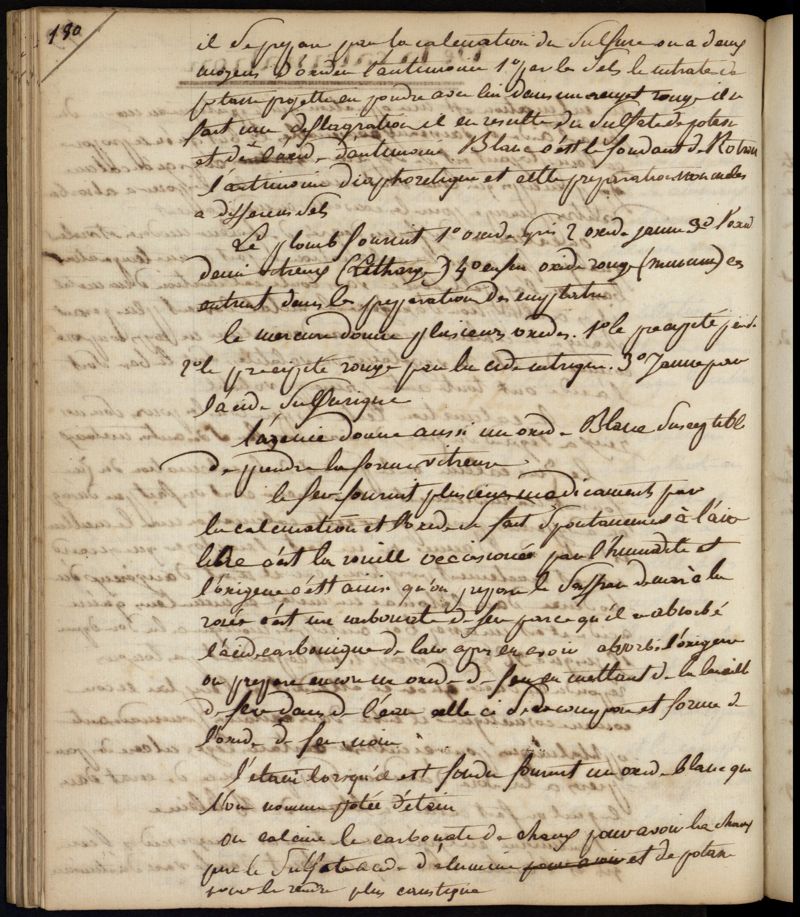 180
il se prepare par la calcination du sulfure on a deux
moyens d'oxider l'antimoine 1º par les sels le nitrate de
potasse projetté en poudre avec lui dans un creuset rouge il se
fait une deflagration il en resulte du sulfate de potasse
et de l'oxide d'antimoine Blanc c'est le fondant de Rotrou
l'antimoine diaphoretique et cette preparation non melée
a differens sels
Le plomb fournit 1º oxide gris 2 oxide jaune 3º l'oxide
demi vitreux (Litharge) 4º enfin oxide rouge (minium) ces
entrent dans les preparations des emplatres
le mercure donne plusieurs oxides. 1º le precipité per se
2º le precipité rouge par l'acide nitrique. 3º Jaune par
l'acide sulfurique
l'arsenic donne aussi un oxide Blanc susceptible
de prendre la forme vitreuse
le fer fournit plusieurs medicaments par
la calcination et l'oxide se fait spontanement à l'air
libre c'est la rouille occasionée par l'humidité et
l'oxigene c'est ainsi qu'on prepare le saffran de mars à la
rosée c'est un carbonate de fer parce qu'il a absorbé
l'acide carbonique de l'air apres en avoir absorbé l'oxigene
on prepare encore un oxide de fer en mettant de la limaille
de fer dans de l'eau celle ci se decompose et forme de
l'oxide de fer noir
l'étain lorsqu'il est fondu fournit un oxide blanc que
l'on nomme potée d'étain
on calcine le carbonate de chaux pour avoir la chaux
pure le sulfate acide d'alumine pour avoir et de potasse
pour le rendre plus caustique